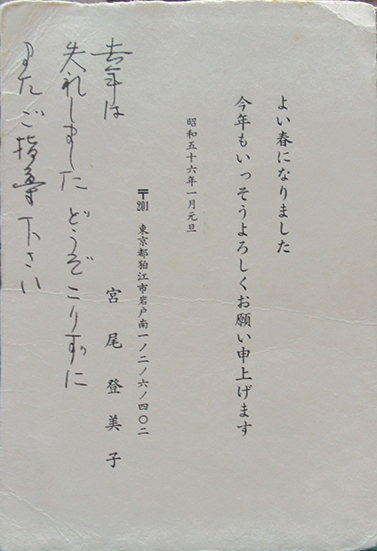 よい春になりました
今年もいっそうよろしくお願い申上げます
昭和五十六年一月元旦
〒201 東京都狛江市岩戸南一ノ二ノ六ノ四〇二
宮尾登美子
去年は
失礼しました どうぞこりずに
またご指導下さい